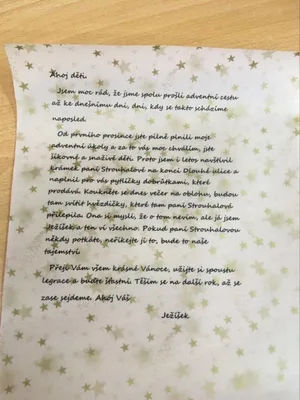 Ahoj děti,
Jsem moc rád, že jsme spolu prošli adventní cestu
až ke dnešnímu dni, dni, kdy se takto scházíme
naposled.
Od prvního prosince jste pilně plnili moje
adventní úkoly a za to vás moc chválím, jste
šikovné a snaživé děti. Proto jsem i letos navštívil
krámek paní Strouhalové na konci Dlouhé ulice a
naplnil pro vás pytlíčky dobrůtkami, které
prodává. Koukněte se dnes večer na oblohu, budou
tam svítit hvězdičky, které tam paní Strouhalová
přilepila. Ona si myslí, že o tom nevím, ale já jsem
Ježíšek a ten ví všechno. Pokud paní Strouhalovou
někdy potkáte, neříkejte jí to, bude to naše
tajemství.
Přeji Vám všem krásné Vánoce, užijte si spoustu
legrace a buďte šťastní. Těším se na další rok, až se
zase sejdeme. Ahoj Váš
Ježíšek